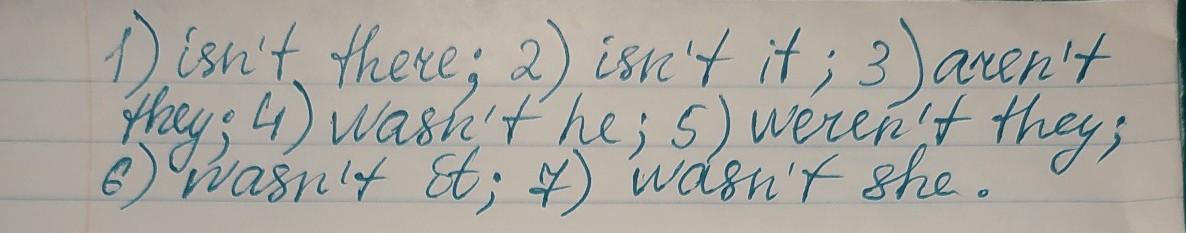 1) isn't there; 2) isn't it; 3) aren't
they; 4) wasn't he; 5) weren't they;
6) wasn't it; 7) wasn't she.